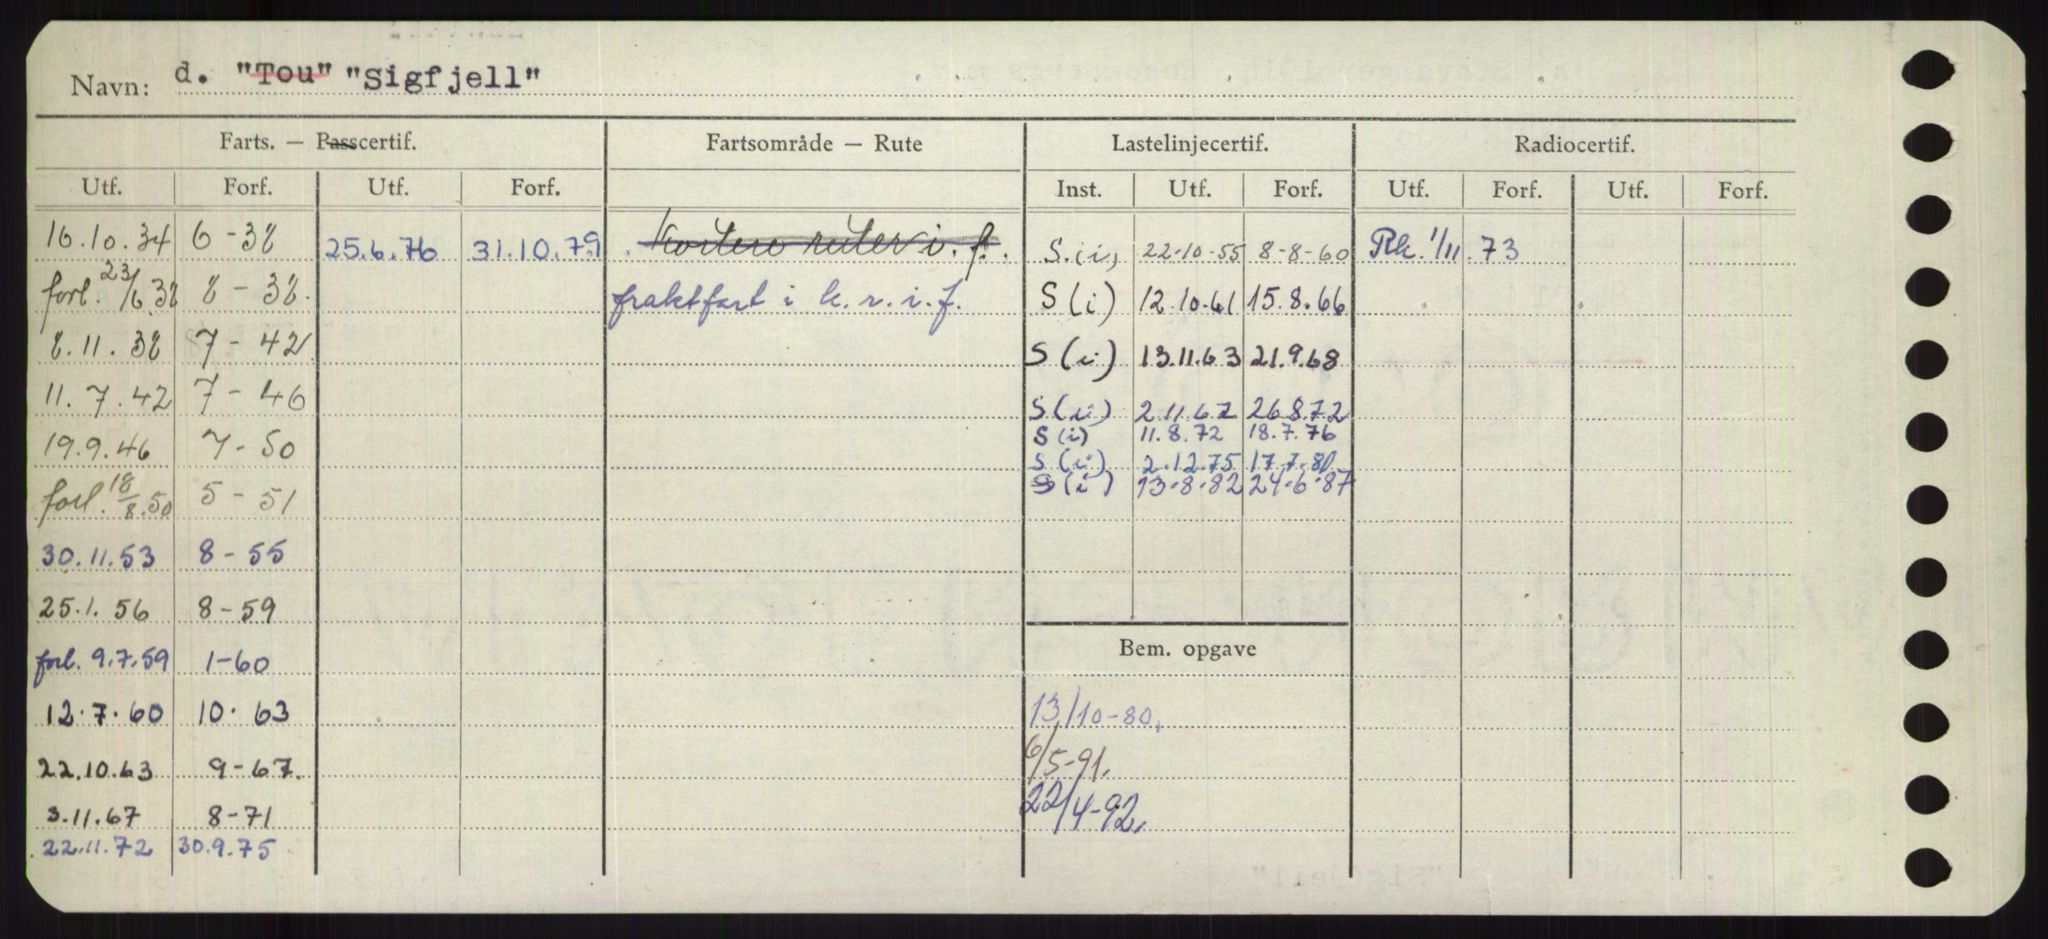 Navn: d. "Tou" "Sigfjell"
Farts. — Passcertif. Fartsområde — Rute Lastelinjecertif. Radiocertif.
Utf. Forf. Utf. Forf. Inst. Utf. Forf. Utf. Forf. Utf. Forf.
16.10.34 6-38 25.6.76 31.10.79 Kortere ruter i. f. S.(i) 22-10-55 8-8-60 Rk. 1/11. 73
forl. 23/6 38 8-38. fraktfart i k.r.i.f. S(i) 12.10.61 15.8.66
8.11.38 7-42 S(i) 13.11.63 21.9.68
11.7.42 7-46 S(i) 2.11.67 26.8.72
S(i) 11.8.72 18.7.76
19.9.46 7-50 S(i) 2.12.75 17.7.80
forl. 18/8.50 5-51 S(i) 13.8.82 24.6.87
30.11.53 8-55
25.1.56 8-59
Bem. opgave
forl. 9.7.59 1-60
12.7.60 10.63 13/10-80.
22.10.63 9-67. 6/5-91.
3.11.67 8-71 22/4-92.
22.11.72 30.9.75